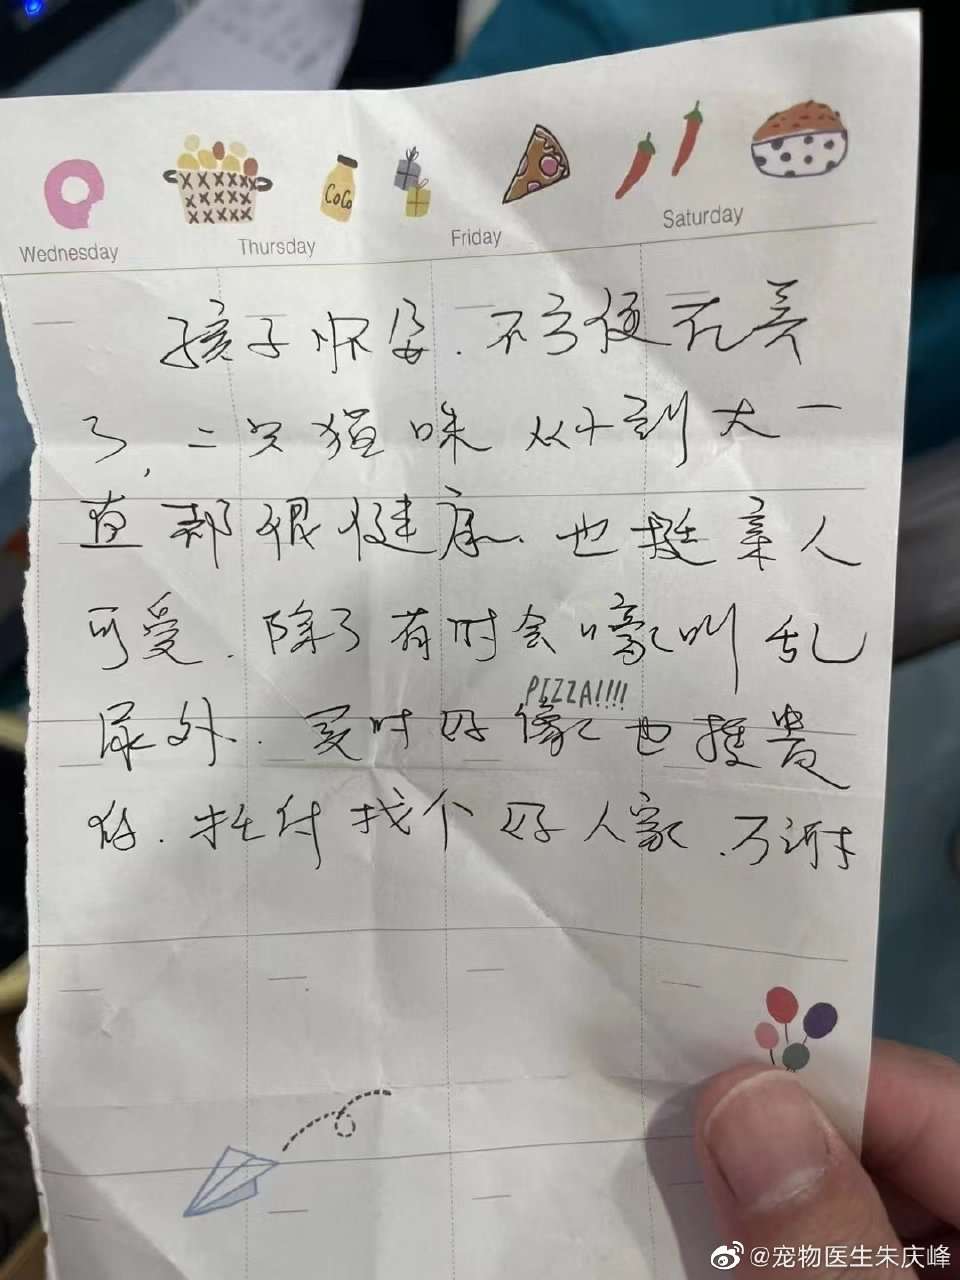 CoCo
Wednesday Thursday Friday Saturday
孩子怀孕.不方便在养
了,二只猫咪从小到大一
直都很健康.也挺亲人
可爱.除了有时会嚎叫乱
尿外.买时好像也挺贵
PIZZA!!!!
的.托付找个好人家.万谢
@宠物医生朱庆峰